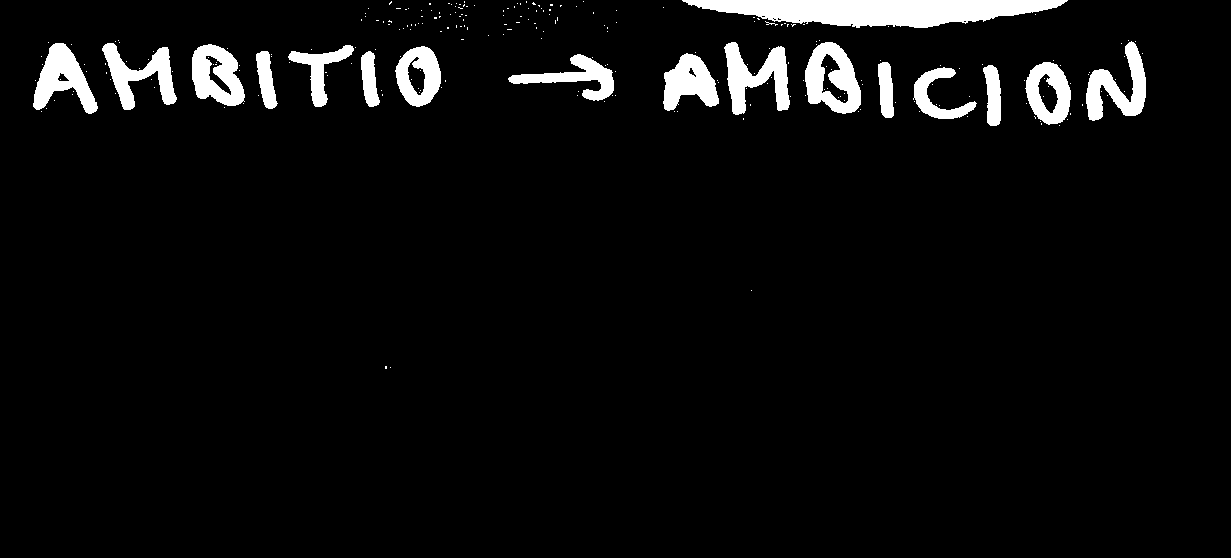 AMBITIO → AMBICION